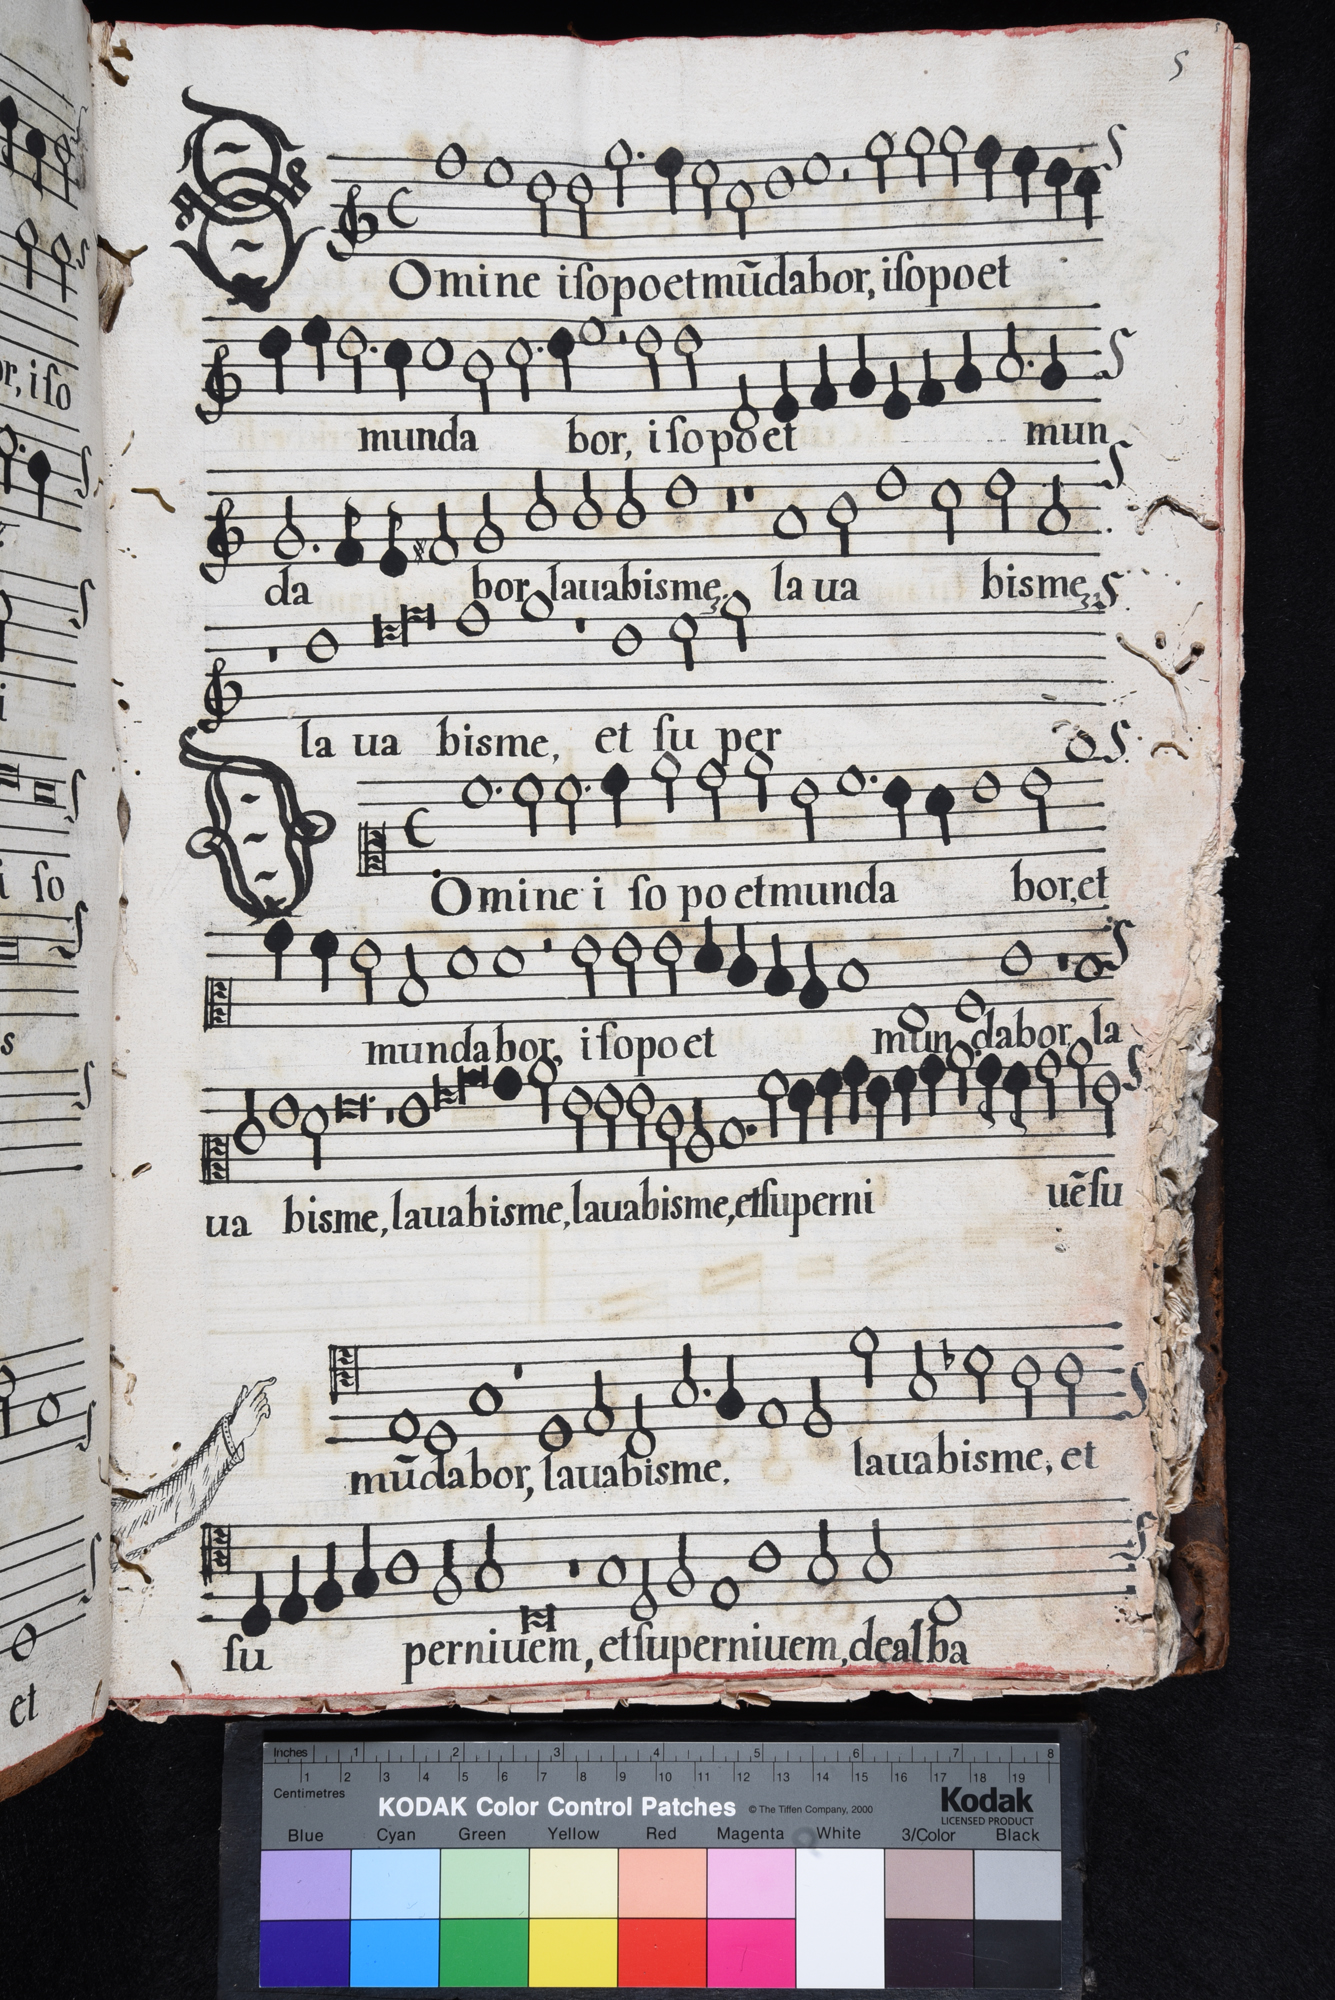 5
Omine iſopoetmũdabor, iſopoet
munda bor, iſopoet mun
da bor, lauabisme, laua bisme,
la ua bisme, et ſu per
Omine i ſo po etmunda bor, et
mundabor, iſopoet mun dabor, la
ua bisme, lauabisme, lauabisme, etſuperni uẽſu
mũdabor, lauabisme, lauabisme, et
ſu perniuem, etſuperniuem, dealba
r, iſo
i
i ſo
s
et
Inches 1 2 3 4 5 6 7 8
Centimetres 1 2 3 4 5 6 7 8 9 10 11 12 13 14 15 16 17 18 19
KODAK Color Control Patches © The Tiffen Company, 2000 Kodak
LICENSED PRODUCT
Blue Cyan Green Yellow Red Magenta White 3/Color Black